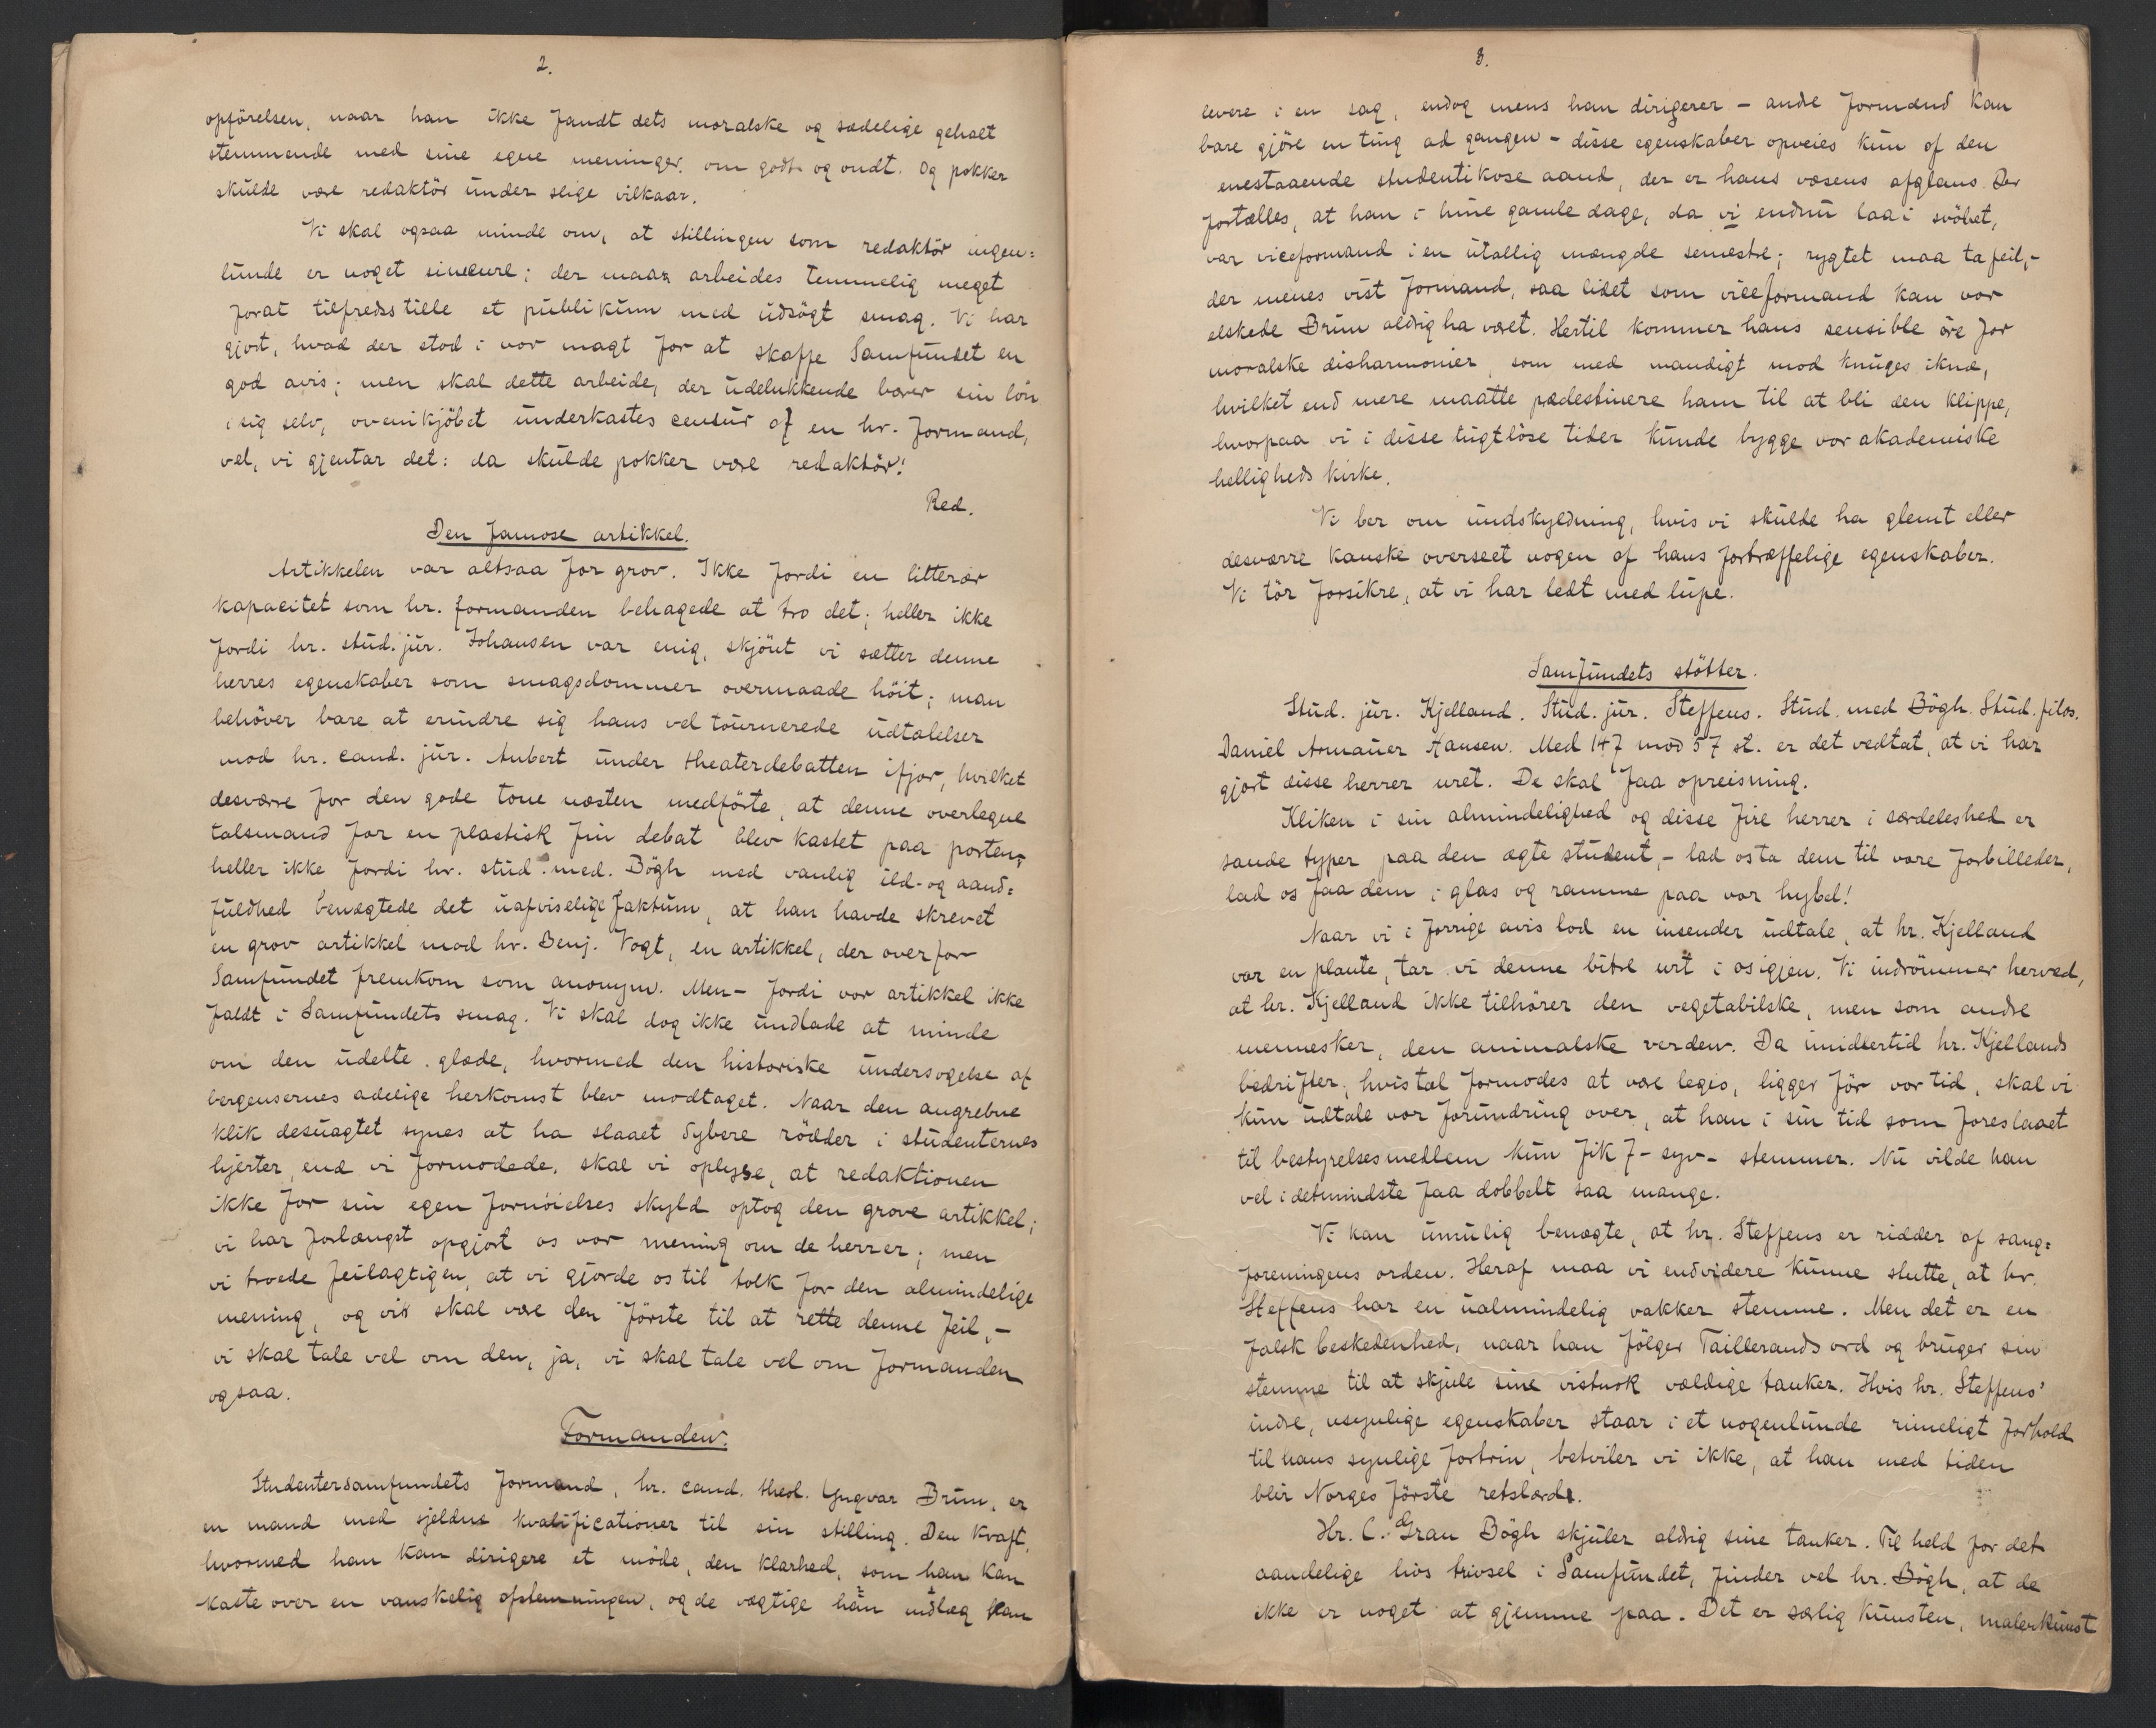 2.
opförelsen, naar han ikke fandt dets moralske og sædelige gehalt
stemmende med sine egne meninger om godt og ondt. Og pokker
skulde være redaktör under slige vilkaar.
Vi skal ogsaa minde om, at stillingen som redaktör ingen=
lunde er noget sinecure; der maa arbeides temmelig meget
forat tilfredsstille et publikum med udsögt smag. Vi har
gjort, hvad der stod i vor magt for at skaffe Samfundet en
god avis; men skal dette arbeide, der udelukkende bærer sin lön
i sig selv, ovenikjöbet underkastes censur af en hr. formand,
vel, vi gjentar det: da skulde pokker være redaktör!
Red.
Den famose artikkel.
Artikkelen var altsaa for grov. Ikke fordi en litterær
kapacitet som hr. formanden behagede at tro det; heller ikke
fordi hr. stud. jur. Johansen var enig, skjönt vi sætter denne
herres egenskaber som smagsdommer overmaade höit; man
behöver bare at erindre sig hans vel tournerede udtalelser
mod hr. cand. jur. Aubert under theaterdebatten ifjor, hvilket
desværre for den gode tone næsten medförte, at denne overlegne
talsmand for en plastisk fin debat blev kastet paa porten;
heller ikke fordi hr. stud. med. Bögh med vanlig ild- og aand=
fuldhed benægtede det uafviselige faktum, at han havde skrevet
en grov artikkel mod hr. Benj. Vogt, en artikkel, der overfor
Samfundet fremkom som anonym. Men - fordi vor artikkel ikke
faldt i Samfundets smag. Vi skal dog ikke undlade at minde
om den udelte glæde, hvormed den historiske undersögelse af
bergensernes adelige herkomst blev modtaget. Naar den angrebne
klik desuagtet synes at ha slaaet dybere rödder i studenternes
hjerter, end vi formodede, skal vi oplyse, at redaktionen
ikke for sin egen fornöielses skyld optog den grove artikkel;
vi har forlængst opgjort os vor mening om de herrer; men
vi troede feilagtigen, at vi gjorde os til tolk for den almindelige
mening, og vi skal være den förste til at rette denne feil, -
vi skal tale vel om den, ja, vi skal tale vel om formanden
ogsaa.
Formanden.
Studentersamfundets formand, hr. cand. theol. Yngvar Brun, er
en mand med sjeldne kvalificationer til sin stilling. Den kraft,
hvormed han kan dirigere et möde, den klarhed, som han kan
kaste over en vanskelig afstemningen, og de vægtige indlæg han kan
3.
levere i en sag, endog mens han dirigerer - andre formænd kan
bare gjöre en ting ad gangen - disse egenskaber opveies kun af den
enestaaende studentikose aand, der er hans væsens afglans. Der
fortælles, at han i hine gamle dage, da vi endnu laa i svöbet,
var viceformand i en utallig mængde semestre; rygtet maa ta feil, -
der menes vist formand, saa lidet som viceformand kan vor
elskede Brun aldrig ha været. Hertil kommer hans sensible öre for
moralske disharmonier, som med mandigt mod knuges iknæ,
hvilket end mere maatte prædestinere ham til at bli den klippe,
hvorpaa vi i disse tugtlöse tider kunde bygge vor akademiske
helligheds kirke.
Vi ber om undskyldning, hvis vi skulde ha glemt eller
desværre kanske overseet nogen af hans fortræffelige egenskaber.
Vi tör forsikre, at vi har ledt med lupe.
Samfundets stötter.
Stud. jur. Kjelland. Stud. jur. Steffens. Stud. med Bögh. Stud. filos.
Daniel Armauer Hansen. Med 147 mod 57 st. er det vedtat, at vi har
gjort disse herrer uret. De skal faa opreisning.
Kliken i sin almindelighed og disse fire herrer i særdeleshed er
sande typer paa den ægte student, - lad os ta dem til vore forbilleder,
lad os faa dem i glas og ramme paa vor hybel!
Naar vi i forrige avis lod en insender udtale, at hr. Kjelland
var en plante, tar vi denne bitre urt i os igjen. Vi indrömmer herved,
at hr. Kjelland ikke tilhörer den vegetabilske, men som andre
mennesker, den animalske verden. Da imidlertid hr. Kjellands
bedrifter, hvis tal formodes at være legio, ligger för vor tid, skal vi
kun udtale vor forundring over, at han i sin tid som foreslaaet
til bestyrelsesmedlem kun fik 7 - syv - stemmer. Nu vilde han
vel i detmindste faa dobbelt saa mange.
Vi kan umulig benægte, at hr. Steffens er ridder af sang=
foreningens orden. Heraf maa vi endvidere kunne slutte, at hr.
Steffens har en ualmindelig vakker stemme. Men det er en
falsk beskedenhed, naar han fölger Taillerands ord og bruger sin
stemme til at skjule sine vistnok vældige tanker. Hvis hr. Steffens'
indre, usynlige egenskaber staar i et nogenlunde rimeligt forhold
til hans synlige fortrin, betviler vi ikke, at han med tiden
blir Norges förste retslærde.
Hr. C. Gran Bögh skjuler aldrig sine tanker. Til held for det
aandelige livs trivsel i Samfundet, finder vel hr. Bögh, at de
ikke er noget at gjemme paa. Det er særlig kunsten, malerkunst